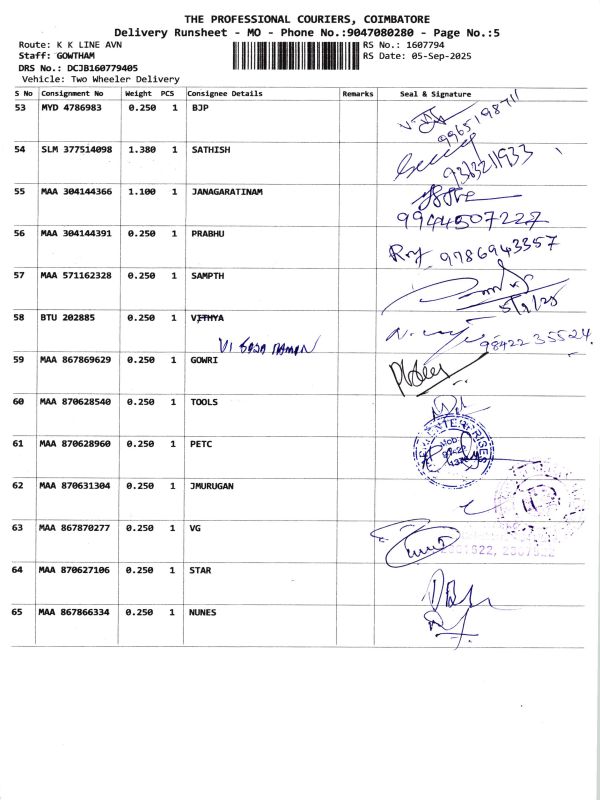 THE PROFESSIONAL COURIERS, COIMBATORE
Delivery Runsheet - MO - Phone No.:9047080280 - Page No.:5
Route: K K LINE AVN
RS No.: 1607794
Staff: GOWTHAM
RS Date: 05-Sep-2025
DRS No.: DCJB160779405
Vehicle: Two Wheeler Delivery
S No Consignment No Weight PCS Consignee Details Remarks Seal & Signature
53 MYD 4786983 0.250 1 BJP
9965198711
54 SLM 377514098 1.380 1 SATHISH
9363211933
55 MAA 304144366 1.100 1 JANAGARATINAM
9944507227
56 MAA 304144391 0.250 1 PRABHU
9786943357
57 MAA 571162328 0.250 1 SAMPTH
58 BTU 202885 0.250 1 VITHYA
98422 35524
59 MAA 867869629 0.250 1 GOWRI
60 MAA 870628540 0.250 1 TOOLS
61 MAA 870628960 0.250 1 PETC
ENTERPRISES
62 MAA 870631304 0.250 1 JMURUGAN
63 MAA 867870277 0.250 1 VG
64 MAA 870627106 0.250 1 STAR
65 MAA 867866334 0.250 1 NUNES